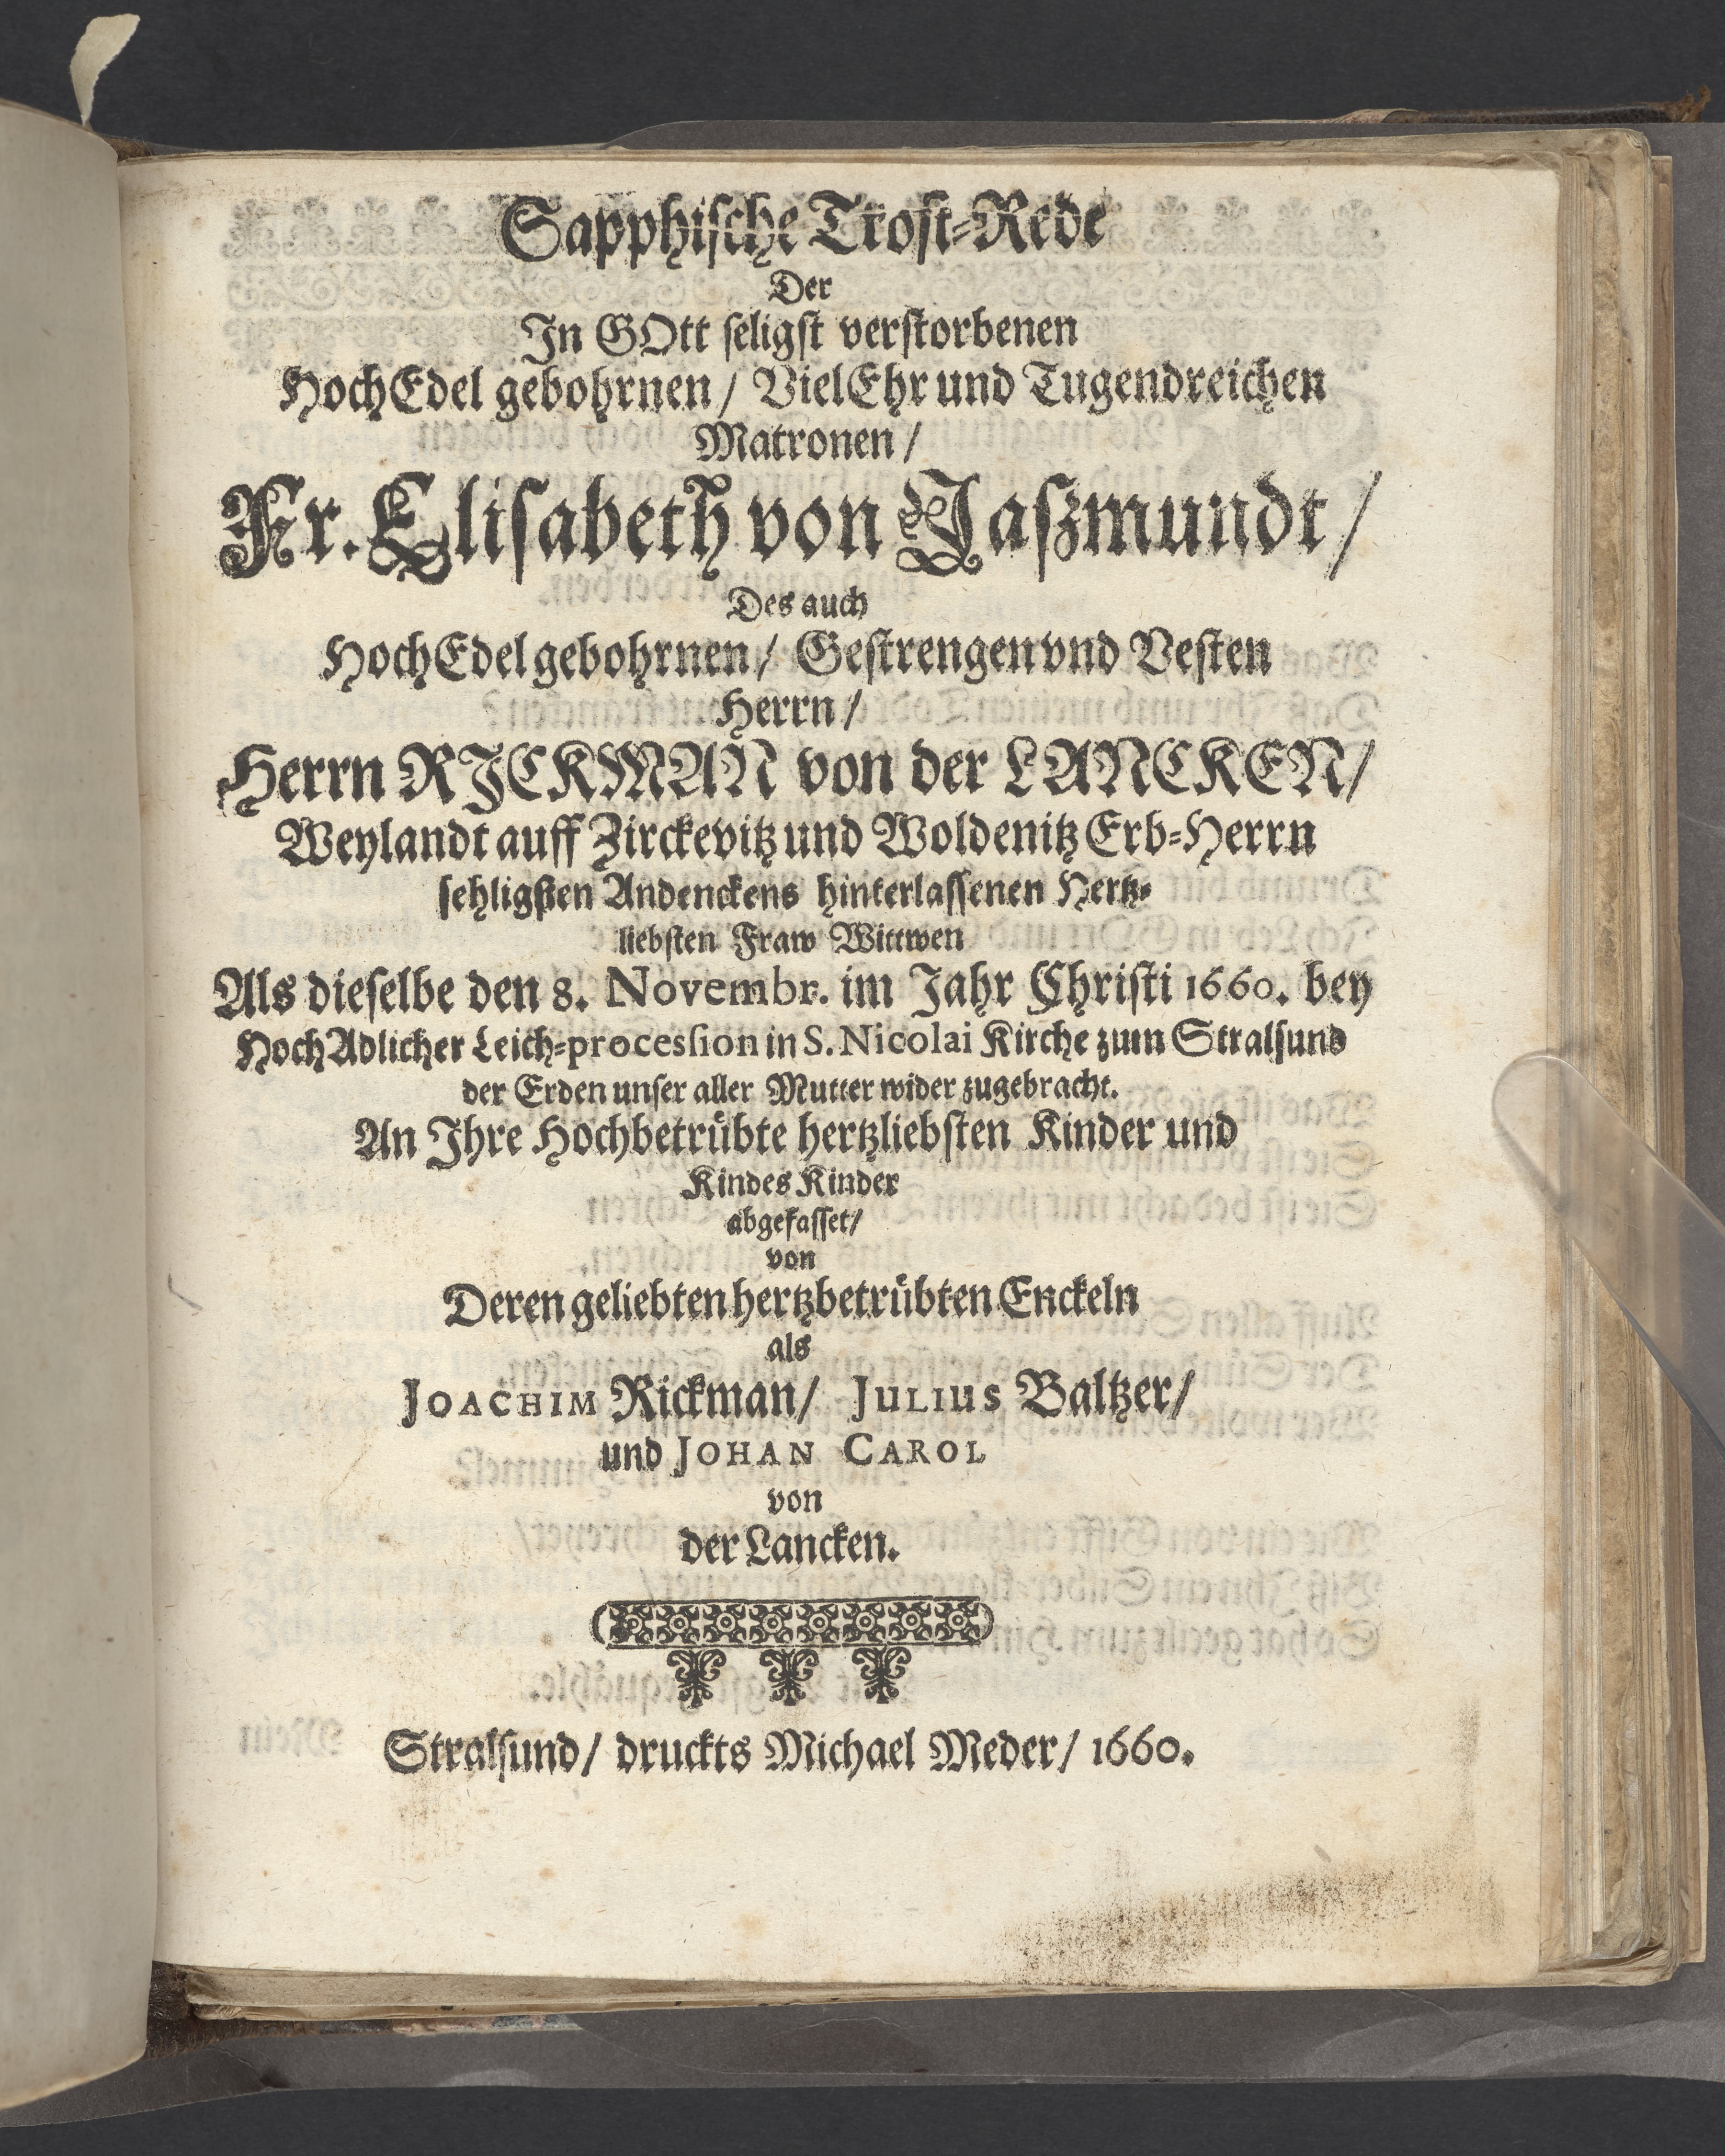 Sapphische Trost-Rede
Der
In GOtt seligst verstorbenen
HochEdel gebohrnen / VielEhr und Tugendreichen
Matronen /
Fr. Elisabeth von Jaszmundt /
Des auch
HochEdel gebohrnen / Gestrengen vnd Vesten
Herrn /
Herrn RICKMAN von der LANCKEN /
Weylandt auff Zirckevitz und Woldenitz Erb-Herrn
sehligsten Andenckens hinterlassenen Hertz-
liebsten Fraw Wittwen
Als dieselbe den 8. Novembr. im Jahr Christi 1660. bey
HochAdlicher Leich-procession in S. Nicolai Kirche zum Stralsund
der Erden unser aller Mutter wider zugebracht.
An Ihre Hochbetrübte hertzliebsten Kinder und
Kindes Kinder
abgefasset /
von
Deren geliebten hertzbetrübten Enckeln
als
JOACHIM Rickman / JULIUS Baltzer /
und JOHAN CAROL
von
der Lancken.
Stralsund / druckts Michael Meder / 1660.